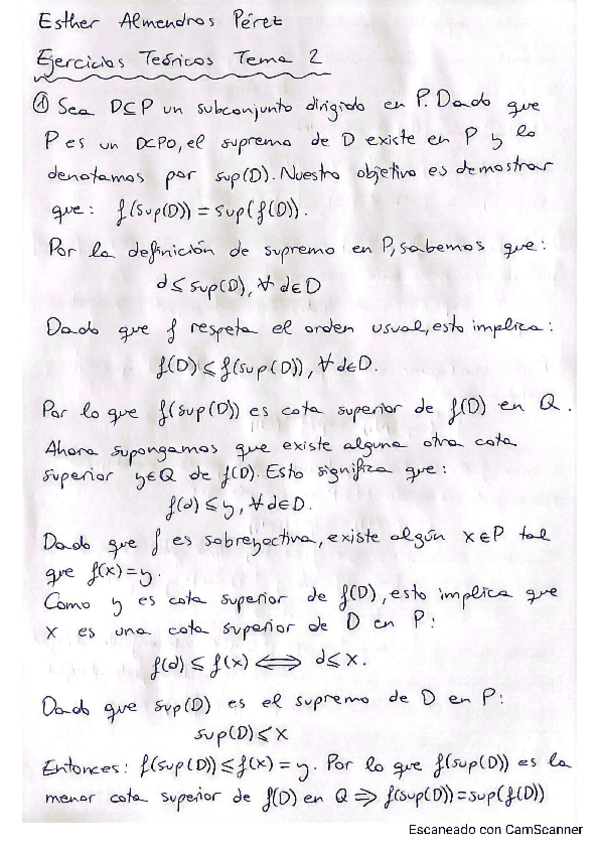 Esther Almendros Pérez
Ejercicios Teóricos Tema 2
① Sea D⊆P un subconjunto dirigido en P. Dado que
P es un DCPO, el supremo de D existe en P y lo
denotamos por sup(D). Nuestro objetivo es demostrar
que: f(sup(D)) = sup(f(D)).
Por la definición de supremo en P, sabemos que:
d ≤ sup(D), ∀ d∈D
Dado que f respeta el orden usual, esto implica:
f(D) ≤ f(sup(D)), ∀ d∈D.
Por lo que f(sup(D)) es cota superior de f(D) en Q.
Ahora supongamos que existe alguna otra cota
superior y∈Q de f(D). Esto significa que:
f(d) ≤ y, ∀ d∈D.
Dado que f es sobreyectiva, existe algún x∈P tal
que f(x)=y.
Como y es cota superior de f(D), esto implica que
x es una cota superior de D en P:
f(d) ≤ f(x) ⟺ d≤x.
Dado que sup(D) es el supremo de D en P:
sup(D) ≤ x
Entonces: f(sup(D)) ≤ f(x) = y. Por lo que f(sup(D)) es la
menor cota superior de f(D) en Q ⇒ f(sup(D)) = sup(f(D))
Escaneado con CamScanner